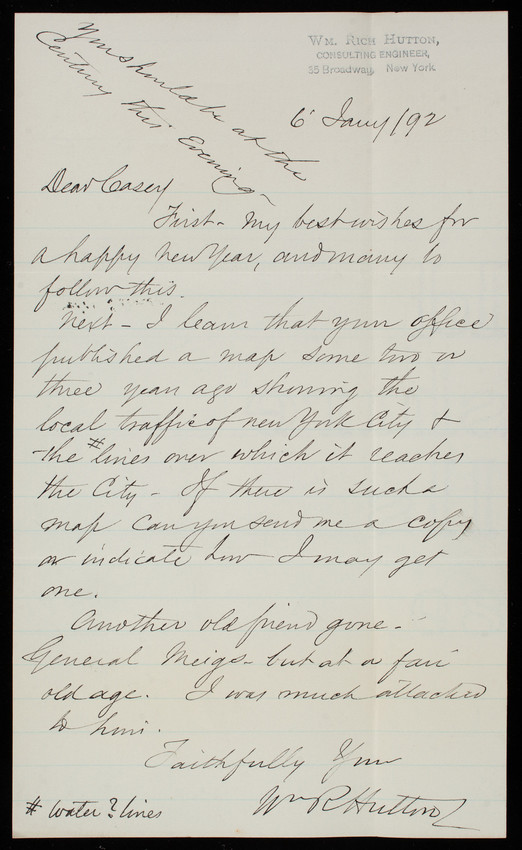 You should be at the
Century this Evening
WM. RICH HUTTON,
CONSULTING ENGINEER,
35 Broadway, New York
6' Jany /92
Dear Casey
First - My best wishes for
a happy new Year, and many to
follow this.
Next - I learn that your office
published a map some two or
three years ago showing the
local traffic of New York City &
the # lines over which it reaches
the City - If there is such a
map can you send me a copy
or indicate how I may get
one.
Another old friend gone -
General Meigs - but at a fair
old age. I was much attached
to him.
Faithfully Your
Wm R Hutton
# water? lines